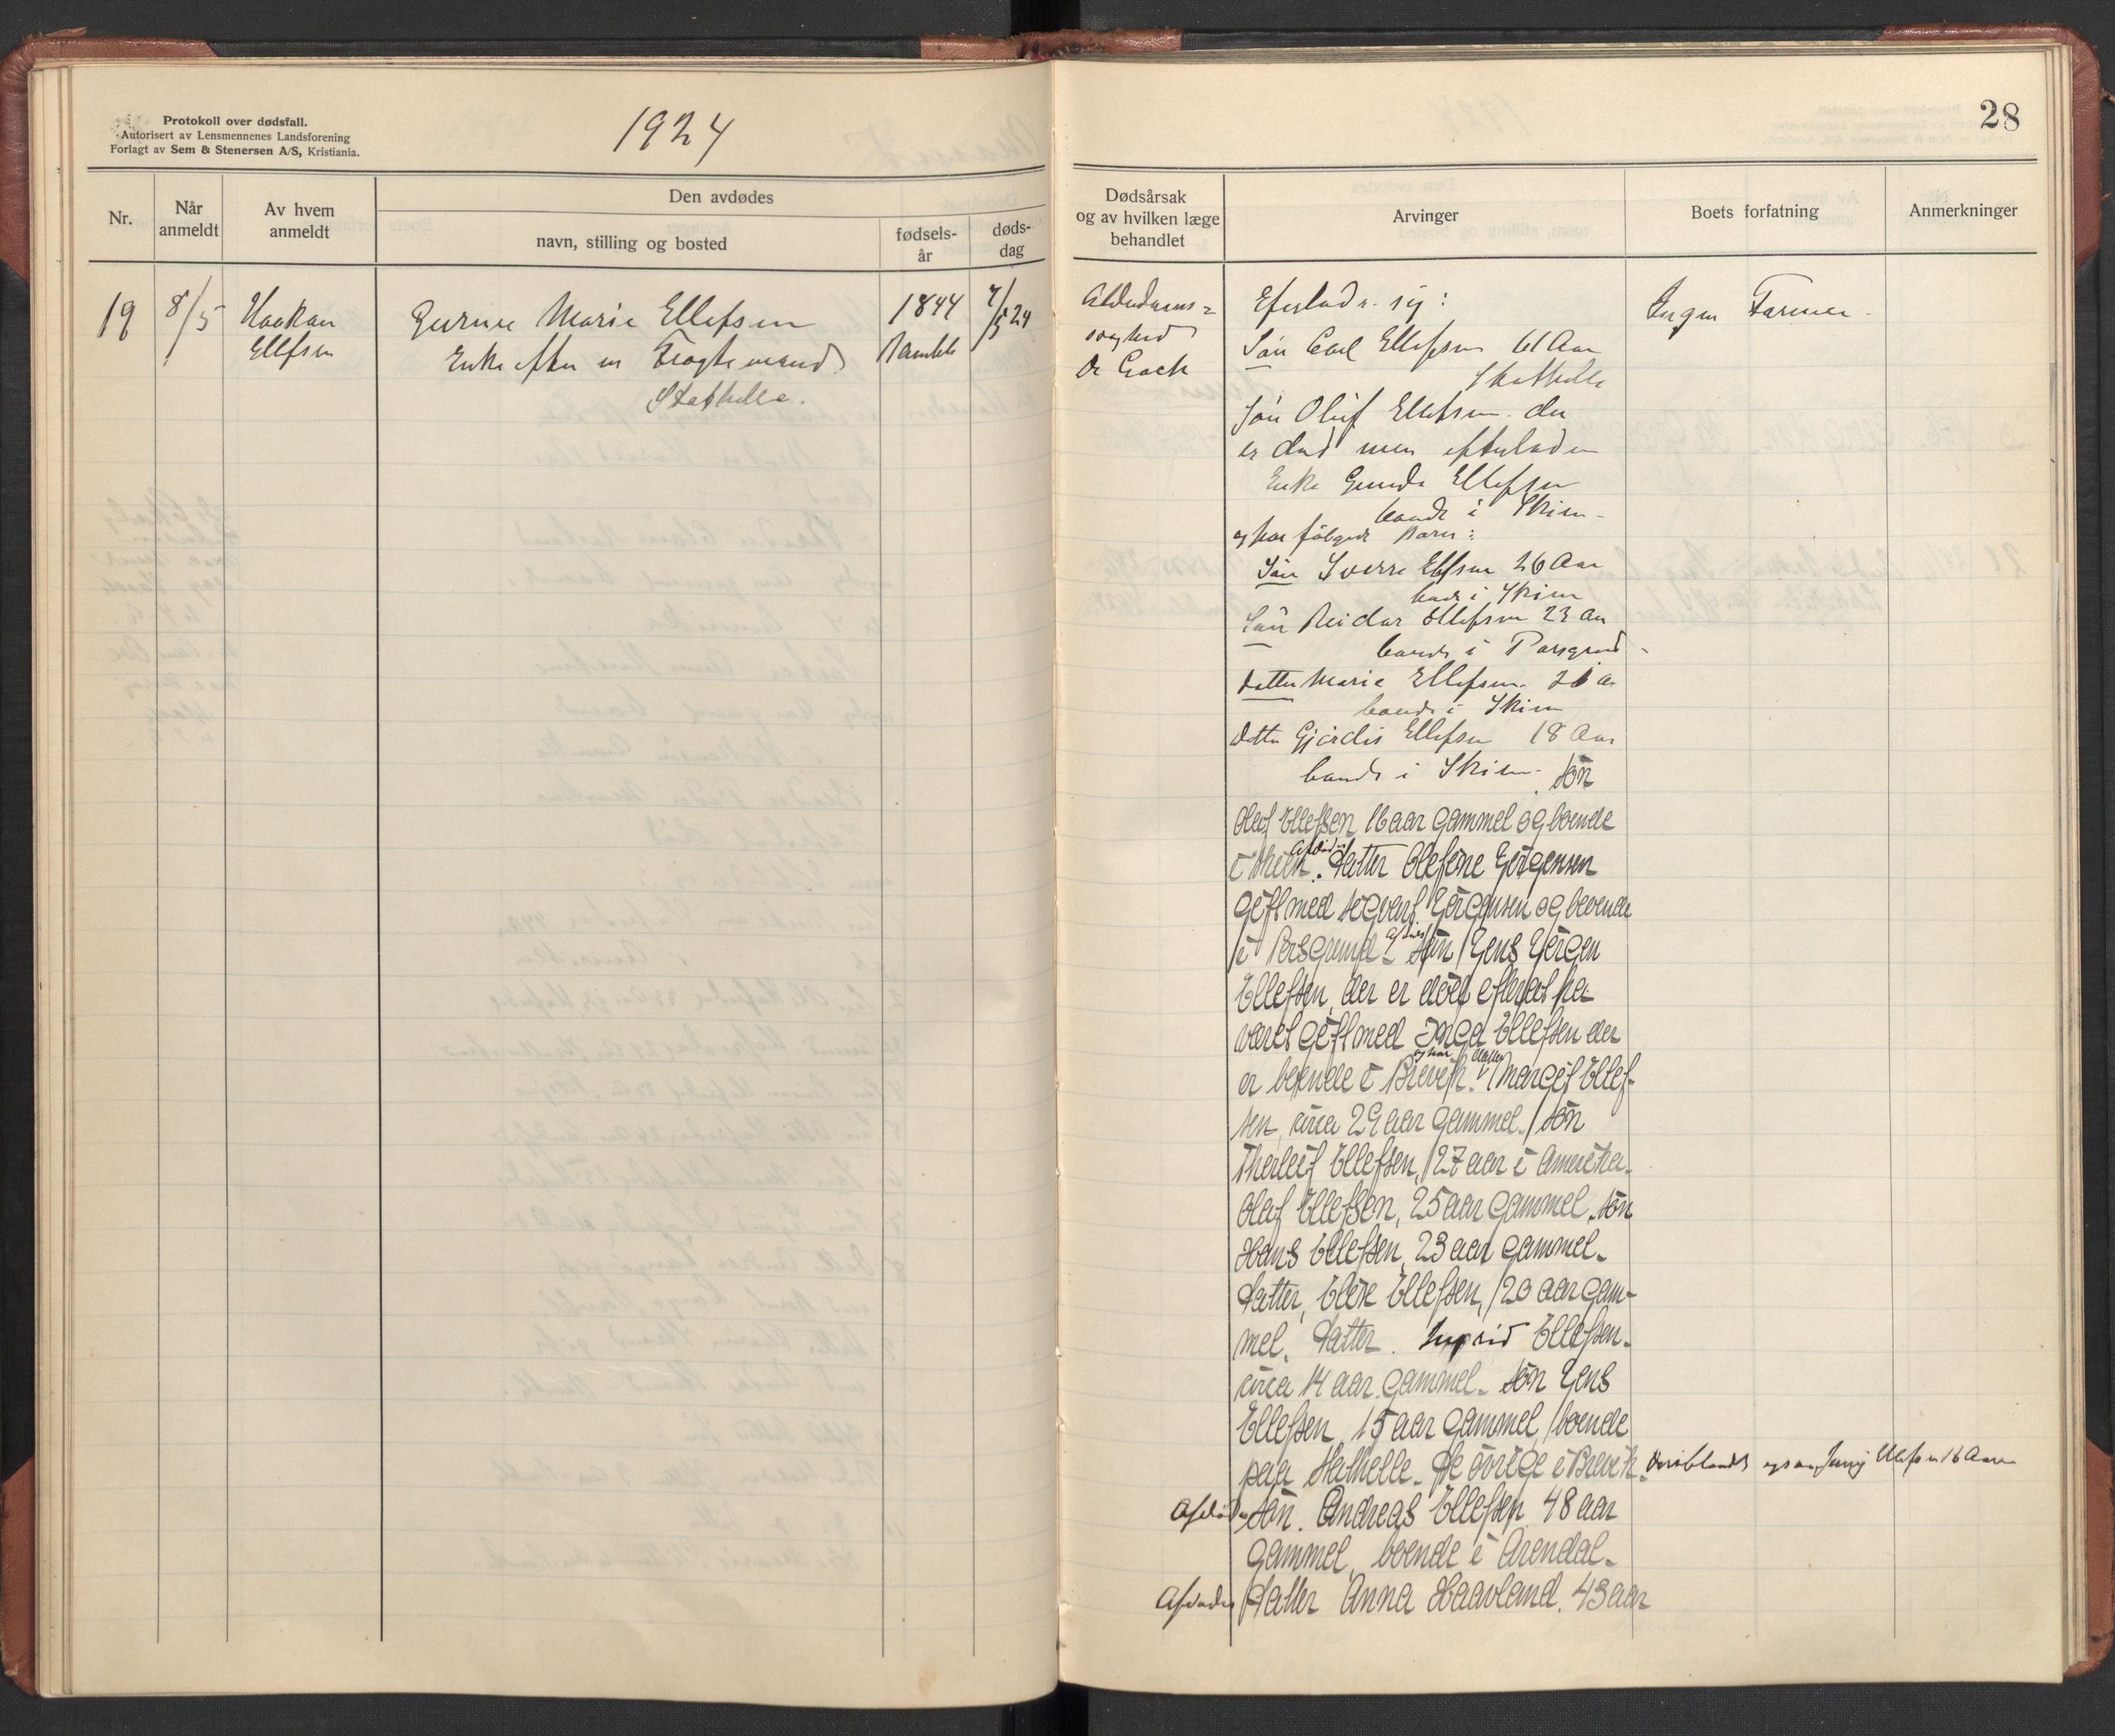 Protokoll over dødsfall.
Autorisert av Lensmennenes Landsforening
Forlagt av Sem & Stenersen A/S, Kristiania.
1924
Nr.
Når anmeldt
Av hvem anmeldt
Den avdødes
navn, stilling og bosted
fødsels-år
døds-dag
19
8/5
Haakan
Ellefsen
Gurine Marie Ellefsen
Enke efter en Fragtemand
Stathelle.
1844
Bamble
7/5 24
28
Dødsårsak
og av hvilken læge
behandlet
Arvinger
Boets forfatning
Anmerkninger
Alderdoms=
svaghed
Dr
Efterlader sig:
Søn Carl Ellefsen 61 Aar
Stathelle
Søn Oluf Ellefsen der
er død men efterlader
Enke Gunda Ellefsen
boende i Skien-
og har følgende Barn:
Søn Sverre Ellefsen 26 Aar
boende i Skien
Søn Reidar Ellefsen 23 Aar
boende i Porsgrund-
datter Marie Ellefsen 21 Aar
boende i Skien
datter Gjerdis Ellefsen 18 Aar
boende i Skien. søn
Olaf Ellefsen 16 aar gammel og boende
i Skien. Afdødes datter Olefine Jørgensen
gift med Sigvart Jørgensen og boende
i Porsgrund- Afdødes søn Jens Jørgen
Ellefsen, der er død efter at ha
været gift med Inga Ellefsen der
er boende i Brevik. og har datter Margit Ellef-
sen, circa 29 aar gammel. søn
Thorleif Ellefsen, 27 aar i Amerika.
Olaf Ellefsen, 25 aar gammel. søn
Hans Ellefsen, 23 aar gammel.
Datter, Ellefsen, 20 aar gam-
mel. Datter. Ingrid Ellefsen.
circa 14 aar. gammel. søn Jens
Ellefsen, 15 aar gammel, boende
paa Stathelle. De øvrige i Brevik. deriblandt ogsaa Ellefsen 16 Aar
Afdødes søn. Andreas Ellefsen 48 aar
gammel, boende i Arendal.
Afdødes Datter Anna Haavland. 43 aar
Ingen Formue.